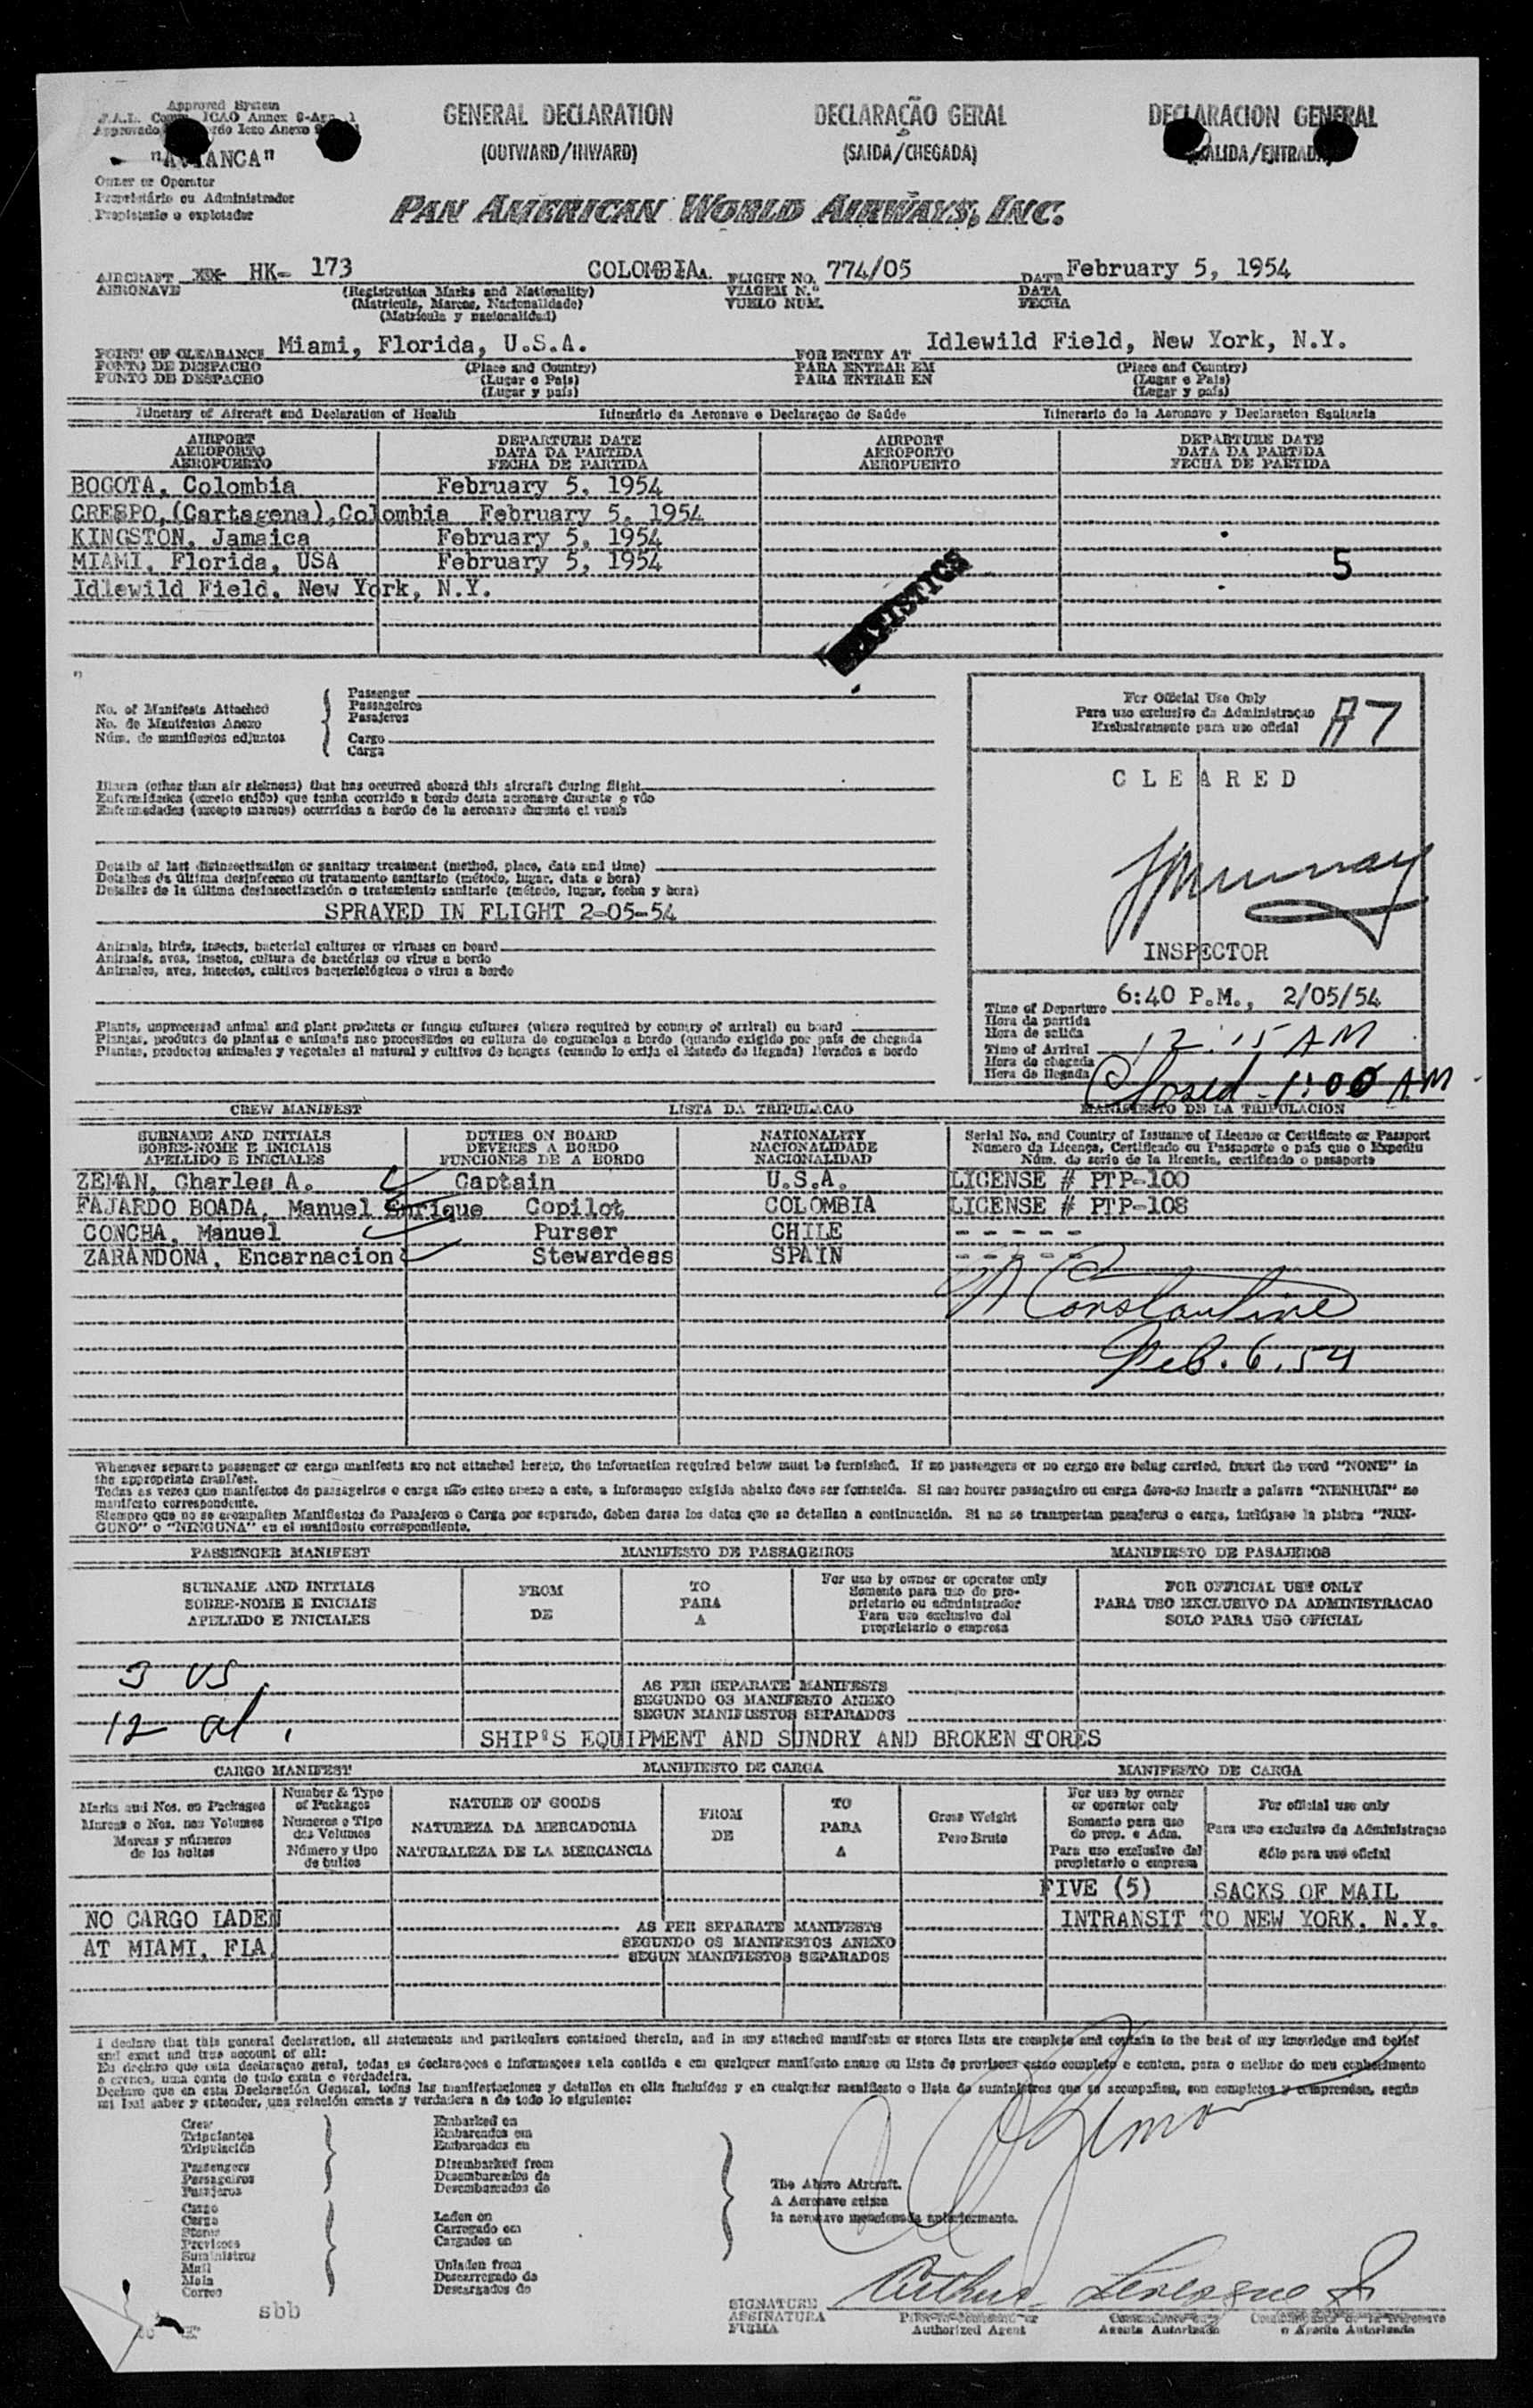 Approved System
F.A.L. Comm. ICAO Annex 9-App. 1
"AVIANCA"
Owner or Operator
Proprietário ou Administrador
Propietario o explotador
GENERAL DECLARATION
(OUTWARD/INWARD)
DECLARAÇÃO GERAL
(SAIDA/CHEGADA)
DECLARACION GENERAL
(SALIDA/ENTRADA)
PAN AMERICAN WORLD AIRWAYS, INC.
AIRCRAFT HK- 173 COLOMBIA FLIGHT NO. 774/05 DATE February 5, 1954
AERONAVE (Registration Marks and Nationality) VIAGEM N.º DATA
(Matricula, Marcas, Nacionalidade) VUELO NUM. FECHA
(Matricula y nacionalidad)
POINT OF CLEARANCE Miami, Florida, U.S.A. FOR ENTRY AT Idlewild Field, New York, N.Y.
PONTO DE DESPACHO (Place and Country) PARA ENTRAR EM (Place and Country)
PUNTO DE DESPACHO (Lugar e País) PARA ENTRAR EN (Lugar e País)
(Lugar y país) (Lugar y país)
Itinerary of Aircraft and Declaration of Health Itinerário da Aeronave e Declaraçao de Saúde Itinerario de la Aeronave y Declaracion Sanitaria
AIRPORT DEPARTURE DATE AIRPORT DEPARTURE DATE
AEROPORTO DATA DA PARTIDA AEROPORTO DATA DA PARTIDA
AEROPUERTO FECHA DE PARTIDA AEROPUERTO FECHA DE PARTIDA
BOGOTA, Colombia February 5, 1954
CRESPO,(Cartagena),Colombia February 5, 1954
KINGSTON, Jamaica February 5, 1954
MIAMI, Florida, USA February 5, 1954 5
Idlewild Field, New York, N.Y.
STATISTICS
No. of Manifests Attached
No. de Manifestos Anexo
Núm. de manifiestos adjuntos
Passenger
Passageiros
Pasajeros
Cargo
Carga
Illness (other than air sickness) that has occurred aboard this aircraft during flight
Enfermidades (exceto enjôo) que tenha ocorrido a bordo desta aeronave durante o vôo
Enfermedades (excepto mareos) ocurridas a bordo de la aeronave durante el vuelo
Details of last disinsectization or sanitary treatment (method, place, date and time)
Detalhes da última desinfeccao ou tratamento sanitario (método, lugar, data e hora)
Detalles de la última desinsectización o tratamiento sanitario (método, lugar, fecha y hora)
SPRAYED IN FLIGHT 2-05-54
Animals, birds, insects, bacterial cultures or viruses on board
Animais, aves, insetos, cultura de bactérias ou virus a bordo
Animales, aves, insectos, cultivos bacteriológicos o virus a bordo
Plants, unprocessed animal and plant products or fungus cultures (where required by country of arrival) on board
Plantas, produtos de plantas e animais nao processados ou cultura de cogumelos a bordo (quando exigido por país de chegada
Plantas, productos animales y vegetales al natural y cultivos de hongos (cuando lo exija el Estado de llegada) llevados a bordo
For Official Use Only
Para uso exclusivo da Administraçao
Exclusivamente para uso oficial
A7
CLEARED
INSPECTOR
Time of Departure 6:40 P.M., 2/05/54
Hora da partida
Hora de salida
Time of Arrival 12:15 AM
Hora de chegada
Hora de llegada
Closed - 1:00 AM
CREW MANIFEST LISTA DA TRIPULACAO MANIFIESTO DE LA TRIPULACION
SURNAME AND INITIALS DUTIES ON BOARD NATIONALITY Serial No. and Country of Issuance of License or Certificate or Passport
SOBRE-NOME E INICIAIS DEVERES A BORDO NACIONALIDADE Número da Licença, Certificado ou Passaporte o país que o Expediu
APELLIDO E INICIALES FUNCIONES DE A BORDO NACIONALIDAD Núm. de serie de la licencia, certificado o pasaporte
ZEMAN, Charles A. Captain U.S.A. LICENSE # PTP-100
FAJARDO BOADA, Manuel Enrique Copilot COLOMBIA LICENSE # PTP-108
CONCHA, Manuel Purser CHILE - - - - -
ZARANDONA, Encarnacion Stewardess SPAIN - - - - -
Constantine
Feb. 6, 54
Whenever separate passenger or cargo manifests are not attached hereto, the information required below must be furnished. If no passengers or no cargo are being carried, insert the word "NONE" in
the appropriate manifest.
Todas as vezes que manifestos de passageiros e carga não estao anexo a este, a informaçao exigida abaixo deve ser fornecida. Si nao houver passageiro ou carga deve-se inserir a palavra "NENHUM" no
manifesto correspondente.
Siempre que no se acompañen Manifiestos de Pasajeros o Carga por separado, deben darse los datos que se detallan a continuación. Si no se transportan pasajeros o carga, inclúyase la plabra "NIN-
GUNO" o "NINGUNA" en el manifiesto correspondiente.
PASSENGER MANIFEST MANIFESTO DE PASSAGEIROS MANIFIESTO DE PASAJEROS
SURNAME AND INITIALS FROM TO For use by owner or operator only FOR OFFICIAL USE ONLY
SOBRE-NOME E INICIAIS DE PARA Somente para uso do pro- PARA USO EXCLUSIVO DA ADMINISTRACAO
APELLIDO E INICIALES A prietario ou administrador SOLO PARA USO OFICIAL
Para uso exclusivo del
propietario o empresa
3 US.
12 al.
AS PER SEPARATE MANIFESTS
SEGUNDO OS MANIFESTO ANEXO
SEGUN MANIFIESTOS SEPARADOS
SHIP'S EQUIPMENT AND SUNDRY AND BROKEN STORES
CARGO MANIFEST MANIFIESTO DE CARGA MANIFESTO DE CARGA
Marks and Nos. on Packages
Marcas e Nos. nos Volumes
Marcas y números
de los bultos
Number & Type
of Packages
Numeros e Tipo
dos Volumes
Número y tipo
de bultos
NATURE OF GOODS
NATUREZA DA MERCADORIA
NATURALEZA DE LA MERCANCIA
FROM
DE
TO
PARA
A
Gross Weight
Peso Bruto
For use by owner
or operator only
Somente para uso
do prop. e Adm.
Para uso exclusivo del
propietario o empresa
For official use only
Para uso exclusivo da Administraçao
Sólo para uso oficial
FIVE (5) SACKS OF MAIL
NO CARGO LADEN INTRANSIT TO NEW YORK, N.Y.
AT MIAMI, FLA.
AS PER SEPARATE MANIFESTS
SEGUNDO OS MANIFESTOS ANEXO
SEGUN MANIFIESTOS SEPARADOS
I declare that this general declaration, all statements and particulars contained therein, and in any attached manifests or stores lists are complete and contain to the best of my knowledge and belief
and exact and true account of all:
Eu declaro que esta declaraçao geral, todas as declaraçoes e informaçoes nela contida e em qualquer manifesto anexo ou lista de provisoes estao completo e contem, para o melhor do meu conhecimento
e crença, uma conta de tudo exata e verdadeira.
Declaro que en esta Declaración General, todas las manifestaciones y detalles en ella incluídos y en cualquier manifiesto o lista de suministros que se acompañen, son completos y comprenden, según
mi leal saber y entender, una relación exacta y verdadera a de todo lo siguiente:
Crew
Tripulantes
Tripulación
Passengers
Passageiros
Pasajeros
Cargo
Carga
Stores
Provisoes
Suministros
Mail
Mala
Correo
Embarked on
Embarcados em
Embarcados en
Disembarked from
Desembarcados de
Desembarcados de
Laden on
Carregado em
Cargados en
Unladen from
Descarregado de
Descargados de
The Above Aircraft.
A Aeronave acima
la aeronave mencionada anteriormente.
sbb
SIGNATURE
ASSINATURA
FIRMA
Authorized Agent
Agente Autorizado
o Agente Autorizado